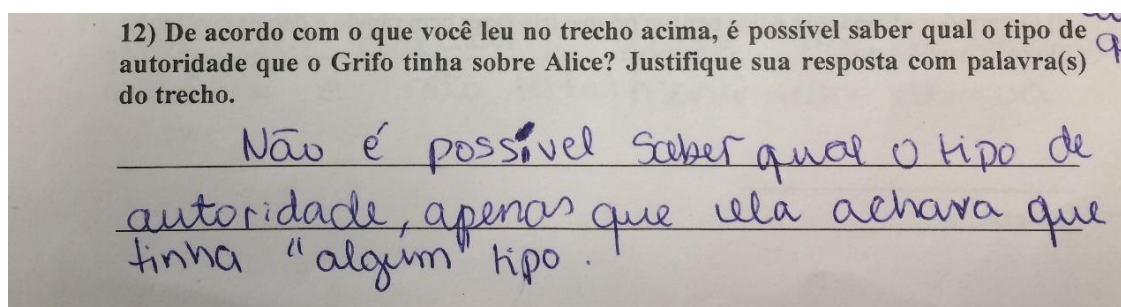 12) De acordo com o que você leu no trecho acima, é possível saber qual o tipo de
autoridade que o Grifo tinha sobre Alice? Justifique sua resposta com palavra(s)
do trecho.
Não é possível saber qual o tipo de
autoridade, apenas que ela achava que
tinha "algum" tipo.